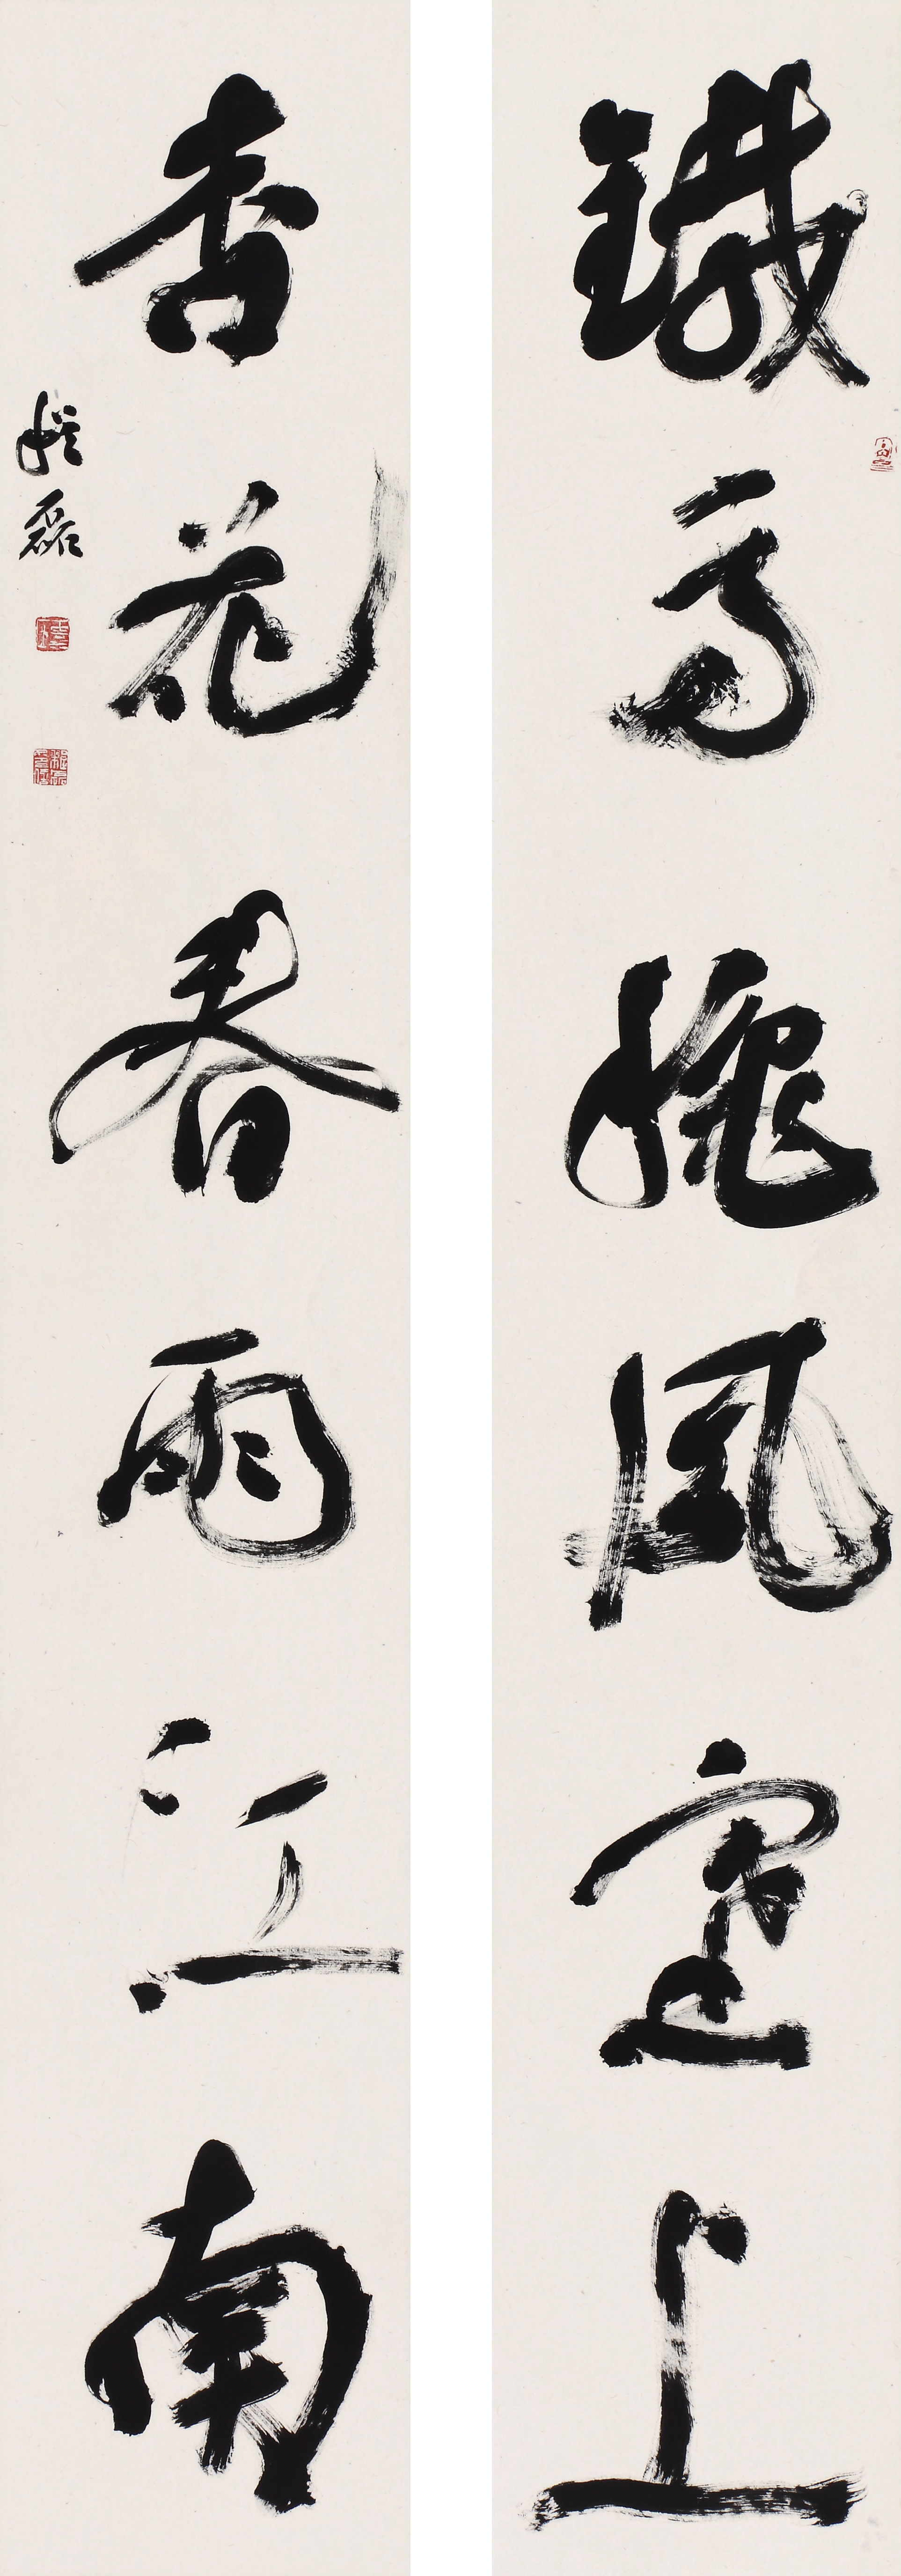 鐵馬秋風塞上
杏花春雨江南
磊